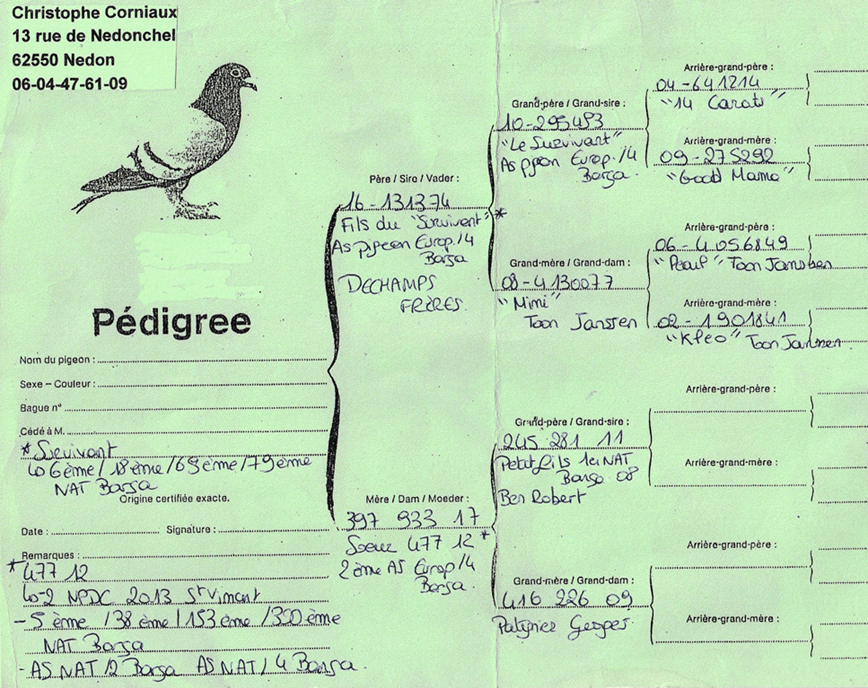 Christophe Corniaux
13 rue de Nedonchel
62550 Nedon
06-04-47-61-09
Pédigree
Nom du pigeon :
Sexe – Couleur :
Bague n°
Cédé à M.
* Survivant
↳ 6ème / 18ème / 69ème / 79ème
NAT Barça
Origine certifiée exacte.
Date : Signature :
Remarques :
* 477 12
↳ 2 NPDC 2013 St Vincent
- 5ème / 38ème / 153ème / 300ème
NAT Barça
- AS NAT/2 Barça AS NAT/4 Barça.
Père / Sire / Vader :
16-131374
Fils du "Survivant" *
As pigeon Europ. /4
Barça
DECHAMPS
FRÈRES.
Mère / Dam / Moeder :
397 933 17
Soeur 477 12 *
2ème AS Europ /4
Barça.
Grand-père / Grand-sire :
10-295493
"Le Survivant"
As pigeon Europ. /4
Barça.
Grand-mère / Grand-dam :
08-4130077
"Mimi"
Toon Janssen
Grand-père / Grand-sire :
245 281 11
Petit fils 1er NAT
Barça 08
Ben Robert
Grand-mère / Grand-dam :
416 226 09
Arrière-grand-père :
04-641214
"14 Carats"
Arrière-grand-mère :
09-275292
"Good Mama"
Arrière-grand-père :
06-4056849
Toon Janssen
Arrière-grand-mère :
02-1901841
"Kleo" Toon Janssen
Arrière-grand-père :
Arrière-grand-mère :
Arrière-grand-père :
Arrière-grand-mère :